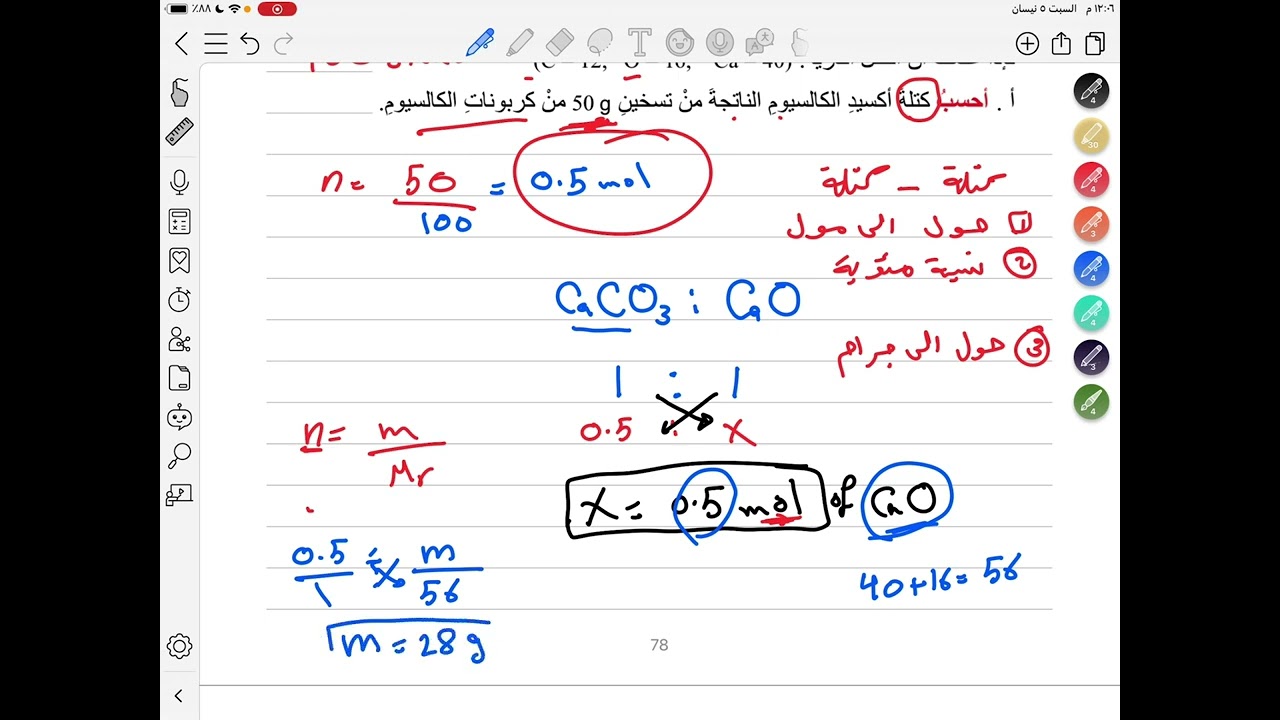 ١٢:٠٦ م السبت ٥ نيسان
٪٨٨
(C = 12, O = 16, Ca = 40)
أ . أحسبُ كتلة أكسيدِ الكالسيومِ الناتجةَ منْ تسخينِ 50 g منْ كربوناتِ الكالسيومِ.
n = 50/100 = 0.5 mol
كتلة – كتلة
1 حول الى مول
2 نسبة مئوية
CaCO3 : CaO
3 حول الى جرام
1 : 1
0.5 : X
n = m/Mr
X = 0.5 mol of CaO
0.5/1 = m/56
40+16=56
m = 28 g
78
4
30
4
3
4
4
3
4